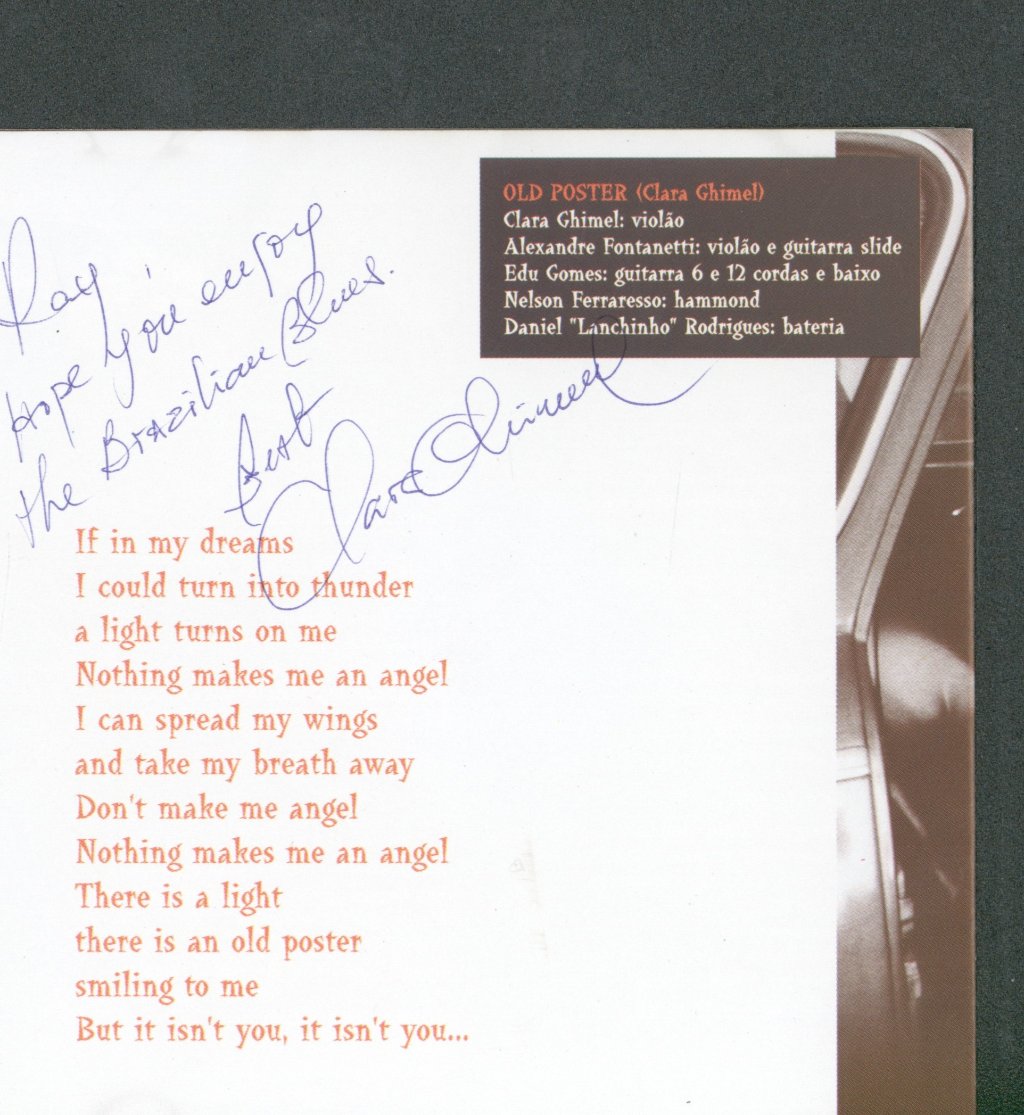 OLD POSTER (Clara Ghimel)
Clara Ghimel: violão
Alexandre Fontanetti: violão e guitarra slide
Edu Gomes: guitarra 6 e 12 cordas e baixo
Nelson Ferraresso: hammond
Daniel "Lanchinho" Rodrigues: bateria
Ray,
Hope you enjoy
the Brazilian Blues.
Best
Clara Ghimel
If in my dreams
I could turn into thunder
a light turns on me
Nothing makes me an angel
I can spread my wings
and take my breath away
Don't make me angel
Nothing makes me an angel
There is a light
there is an old poster
smiling to me
But it isn't you, it isn't you...